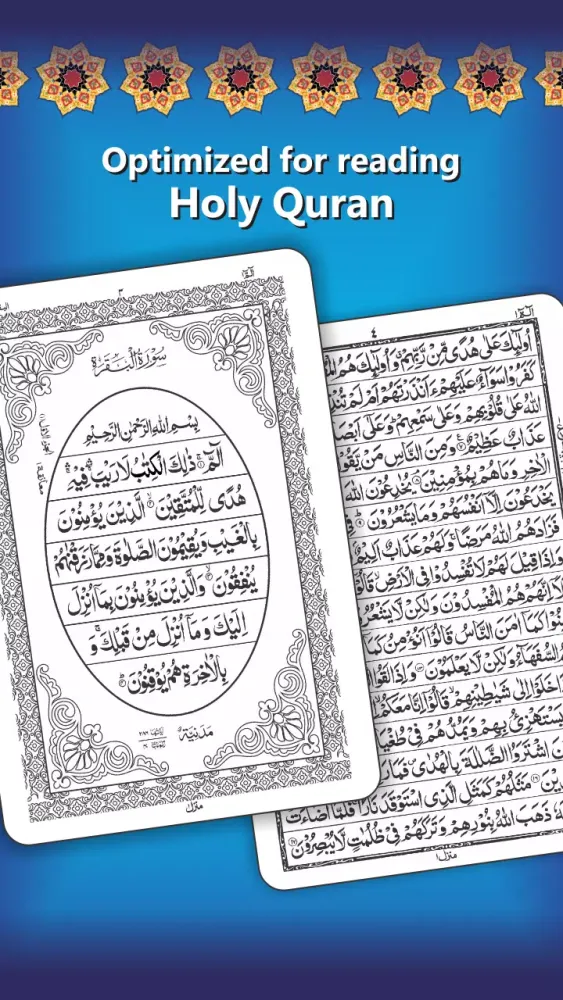 Optimized for reading
Holy Quran
٣
سُورَةُ الْبَقَرَةِ
بِسْمِ اللهِ الرَّحْمٰنِ الرَّحِيْمِ
الٓمّٓ ۚ ذٰلِكَ الْكِتٰبُ لَا رَيْبَ ۛ فِيْهِ ۛ
هُدًى لِّلْمُتَّقِيْنَ ۙ الَّذِيْنَ يُؤْمِنُوْنَ
بِالْغَيْبِ وَيُقِيْمُوْنَ الصَّلٰوةَ وَمِمَّا رَزَقْنٰهُمْ
يُنْفِقُوْنَ ۙ وَالَّذِيْنَ يُؤْمِنُوْنَ بِمَاۤ اُنْزِلَ
اِلَيْكَ وَمَاۤ اُنْزِلَ مِنْ قَبْلِكَ ۚ وَ
بِالْاٰخِرَةِ هُمْ يُوْقِنُوْنَ
مَدَنِيَّة
منزل
٤
اُولٰٓئِكَ عَلٰى هُدًى مِّنْ رَّبِّهِمْ ۙ وَاُولٰٓئِكَ هُمُ
كَفَرُوْا سَوَآءٌ عَلَيْهِمْ ءَاَنْذَرْتَهُمْ اَمْ لَمْ
اللهُ عَلٰى قُلُوْبِهِمْ وَعَلٰى سَمْعِهِمْ ؕ وَعَلٰٓى
عَذَابٌ عَظِيْمٌ وَمِنَ النَّاسِ مَنْ
الْاٰخِرِ وَمَا هُمْ بِمُؤْمِنِيْنَ ۘ يُخٰدِعُوْنَ اللهَ
يَخْدَعُوْنَ اِلَّاۤ اَنْفُسَهُمْ وَمَا يَشْعُرُوْنَ
فَزَادَهُمُ اللهُ مَرَضًا ۚ وَلَهُمْ عَذَابٌ اَلِيْمٌ
وَاِذَا قِيْلَ لَهُمْ لَا تُفْسِدُوْا فِى الْاَرْضِ ۙ
اِنَّهُمْ هُمُ الْمُفْسِدُوْنَ وَلٰكِنْ لَّا
كَمَاۤ اٰمَنَ النَّاسُ قَالُوْۤا اَنُؤْمِنُ كَمَاۤ
السُّفَهَآءُ وَلٰكِنْ لَّا يَعْلَمُوْنَ وَاِذَا لَقُوا
خَلَوْا اِلٰى شَيٰطِيْنِهِمْ ۙ قَالُوْۤا اِنَّا مَعَكُمْ
يَسْتَهْزِئُ بِهِمْ وَيَمُدُّهُمْ فِىْ
اشْتَرَوُا الضَّلٰلَةَ بِالْهُدٰى ۪ فَمَا
مَثَلُهُمْ كَمَثَلِ الَّذِى اسْتَوْقَدَ نَارًا ۚ فَلَمَّاۤ اَضَآءَتْ
ذَهَبَ اللهُ بِنُوْرِهِمْ وَتَرَكَهُمْ فِىْ ظُلُمٰتٍ لَّا يُبْصِرُوْنَ
منزل ١